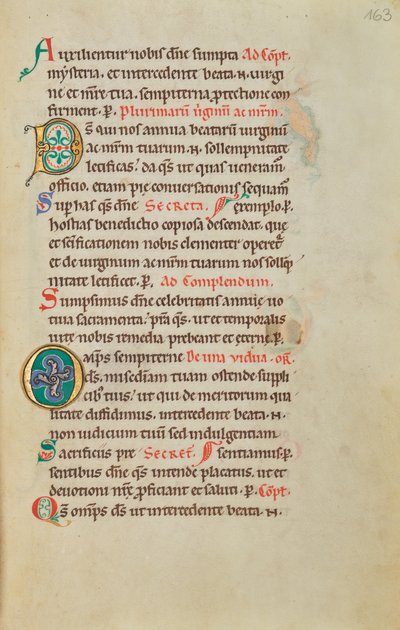 163
Auxilientur nobis dne sumpta Ad Cōpl.
mysteria. et intercedente beata .N. virgi
ne et mr̄e tua. sempiterna protectione con
firment. P. Plurimarū v̄ginū ac mr̄m.
Ds qui nos annua beatarū virginū
ac mr̄m tuarum .N. sollempnitate
letificas: da qs̄ ut quas veneram̄
officio. etiam pie conversationis sequam̄
Sup has qs̄ dn̄e Secreta. exemplo. P.
hostias benedictio copiosa descendat. que
et sc̄ificationem nobis clementer operet̄
et de virginum ac mr̄m tuarum nos sollēp
nitate letificet. P. Ad Complendum.
Sumpsimus dn̄e celebritatis annue vo
tiva sacramenta. p̄ta qs̄. ut et temporalis
vite nobis remedia prebeant et eterne. P.
Omp̄s sempiterne De una vidua. or̄.
ds̄. mis̄cdiam tuam ostende suppli
cib; tuis. ut qui de meritorum qua
litate diffidimus. intercedente beata .N.
non iudicium tuū sed indulgentiam
Sacrificiis pre Secret̄. sentiamus. P.
sentibus dn̄e qs̄ intende placatus. ut et
devotioni nr̄e proficiant et saluti. P. Cōpl.
Qs̄ omp̄s ds̄ ut intercedente beata .N.